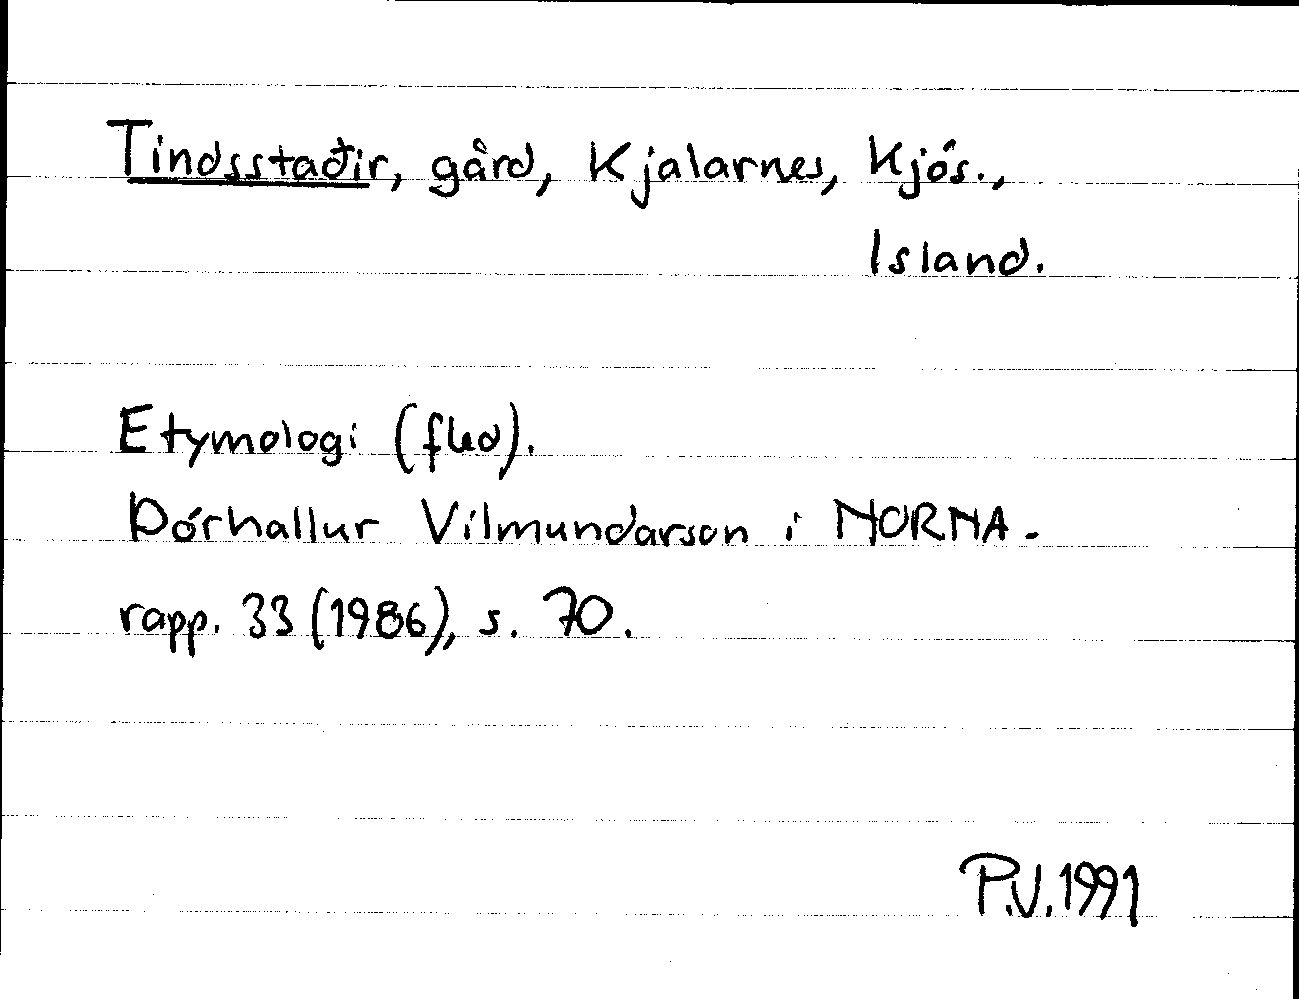 Tindsstaðir, gård, Kjalarnes, Kjós.,
Island.
Etymologi (fled).
Þórhallur Vilmundarson i NORNA-
rapp. 33 (1986), s. 70.
P.V. 1991